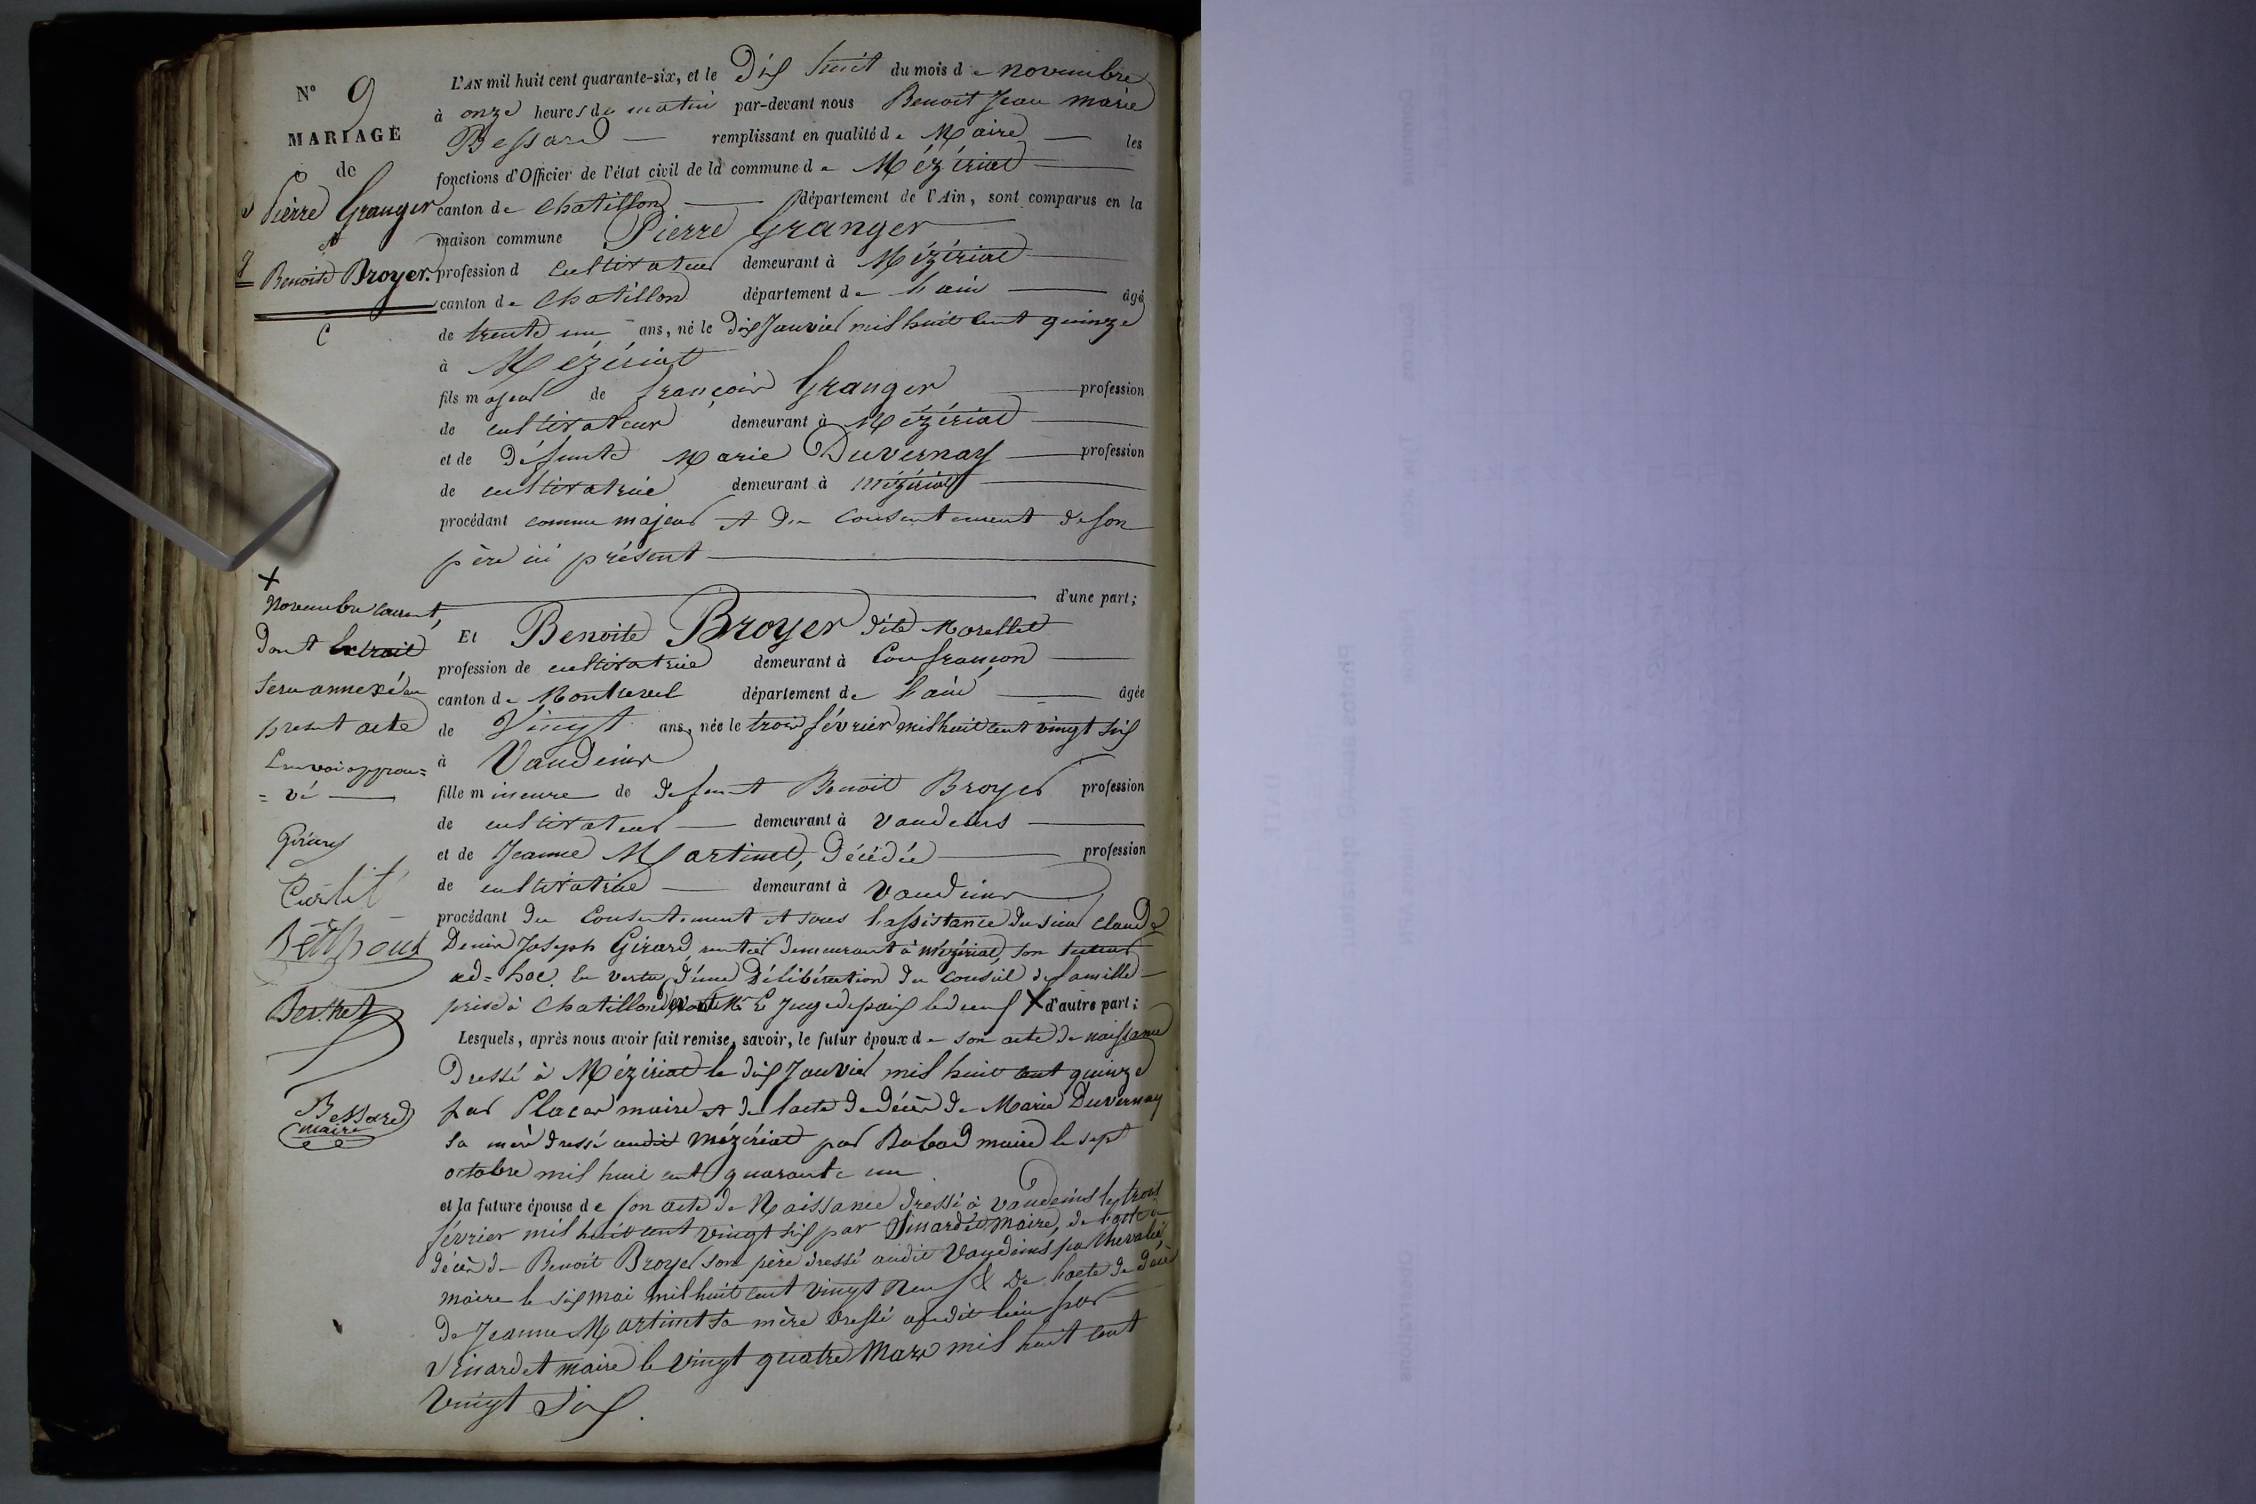 N° 9
MARIAGE
de
Pierre Granger
et
Benoite Broyer.
L'AN mil huit cent quarante-six, et le Dix huit du mois de novembre
à onze heures du matin par-devant nous Benoit Jean marie
Bessard remplissant en qualité de Maire les
fonctions d'Officier de l'état civil de la commune de Mézériat
canton de Chatillon département de l'Ain, sont comparus en la
maison commune Pierre Granger
profession d cultivateur demeurant à Mézériat
canton de Chatillon département de l'ain âgé
de trente un ans, né le dix Janvier mil huit cent quinze
à Mézériat
fils majeur de françois Granger profession
de cultivateur demeurant à Mézériat
et de Défunte Marie Duvernay profession
de cultivatrice demeurant à mézériat
procédant comme majeur et du consentement de son
père ici présent
d'une part;
Et Benoite Broyer dite Morellet
profession de cultivatrice demeurant à Confrançon
canton de Montrevel département de l'ain âgée
de Vingt ans, née le trois février mil huit cent vingt six
à Vandeins
fille mineure de defunt Benoit Broyer profession
de cultivateur demeurant à Vandeins
et de Jeanne Martinet, Décédée profession
de cultivatrice demeurant à Vandeins
procédant du Consentement et sous l'assistance du sieur claude
Denis Joseph Girard, rentier demeurant à mézériat, son tuteur
ad=hoc, en vertu d'une Délibération du conseil de famille
prise à Chatillon devant Mr le Juge de paix le neuf X d'autre part;
Lesquels, après nous avoir fait remise, savoir, le futur époux de son acte de naissance
Dressé à Mézériat le dix Janvier mil huit cent quinze
par Placer maire et de l'acte de décès de Marie Duvernay
sa mère dressé audit Mézériat par Rabad maire le sept
octobre mil huit cent quarante un
et la future épouse de son acte de Naissance dressé à vandeins le trois
février mil huit cent vingt six par Vinardet maire, de l'acte de
décès de Benoit Broyer son père dressé audit Vandeins par Chevalier
maire le six mai mil huit cent vingt neuf & De l'acte de décès
de Jeanne Martinet sa mère dressé audit lieu par
Vinardet maire le vingt quatre Mars mil huit cent
Vingt Six.
X
Novembre courant,
dont extrait
sera annexé au
present acte
Renvoi approu=
=vé
Girard
Curtil
Béthoux
Berthet
Bessard
maire